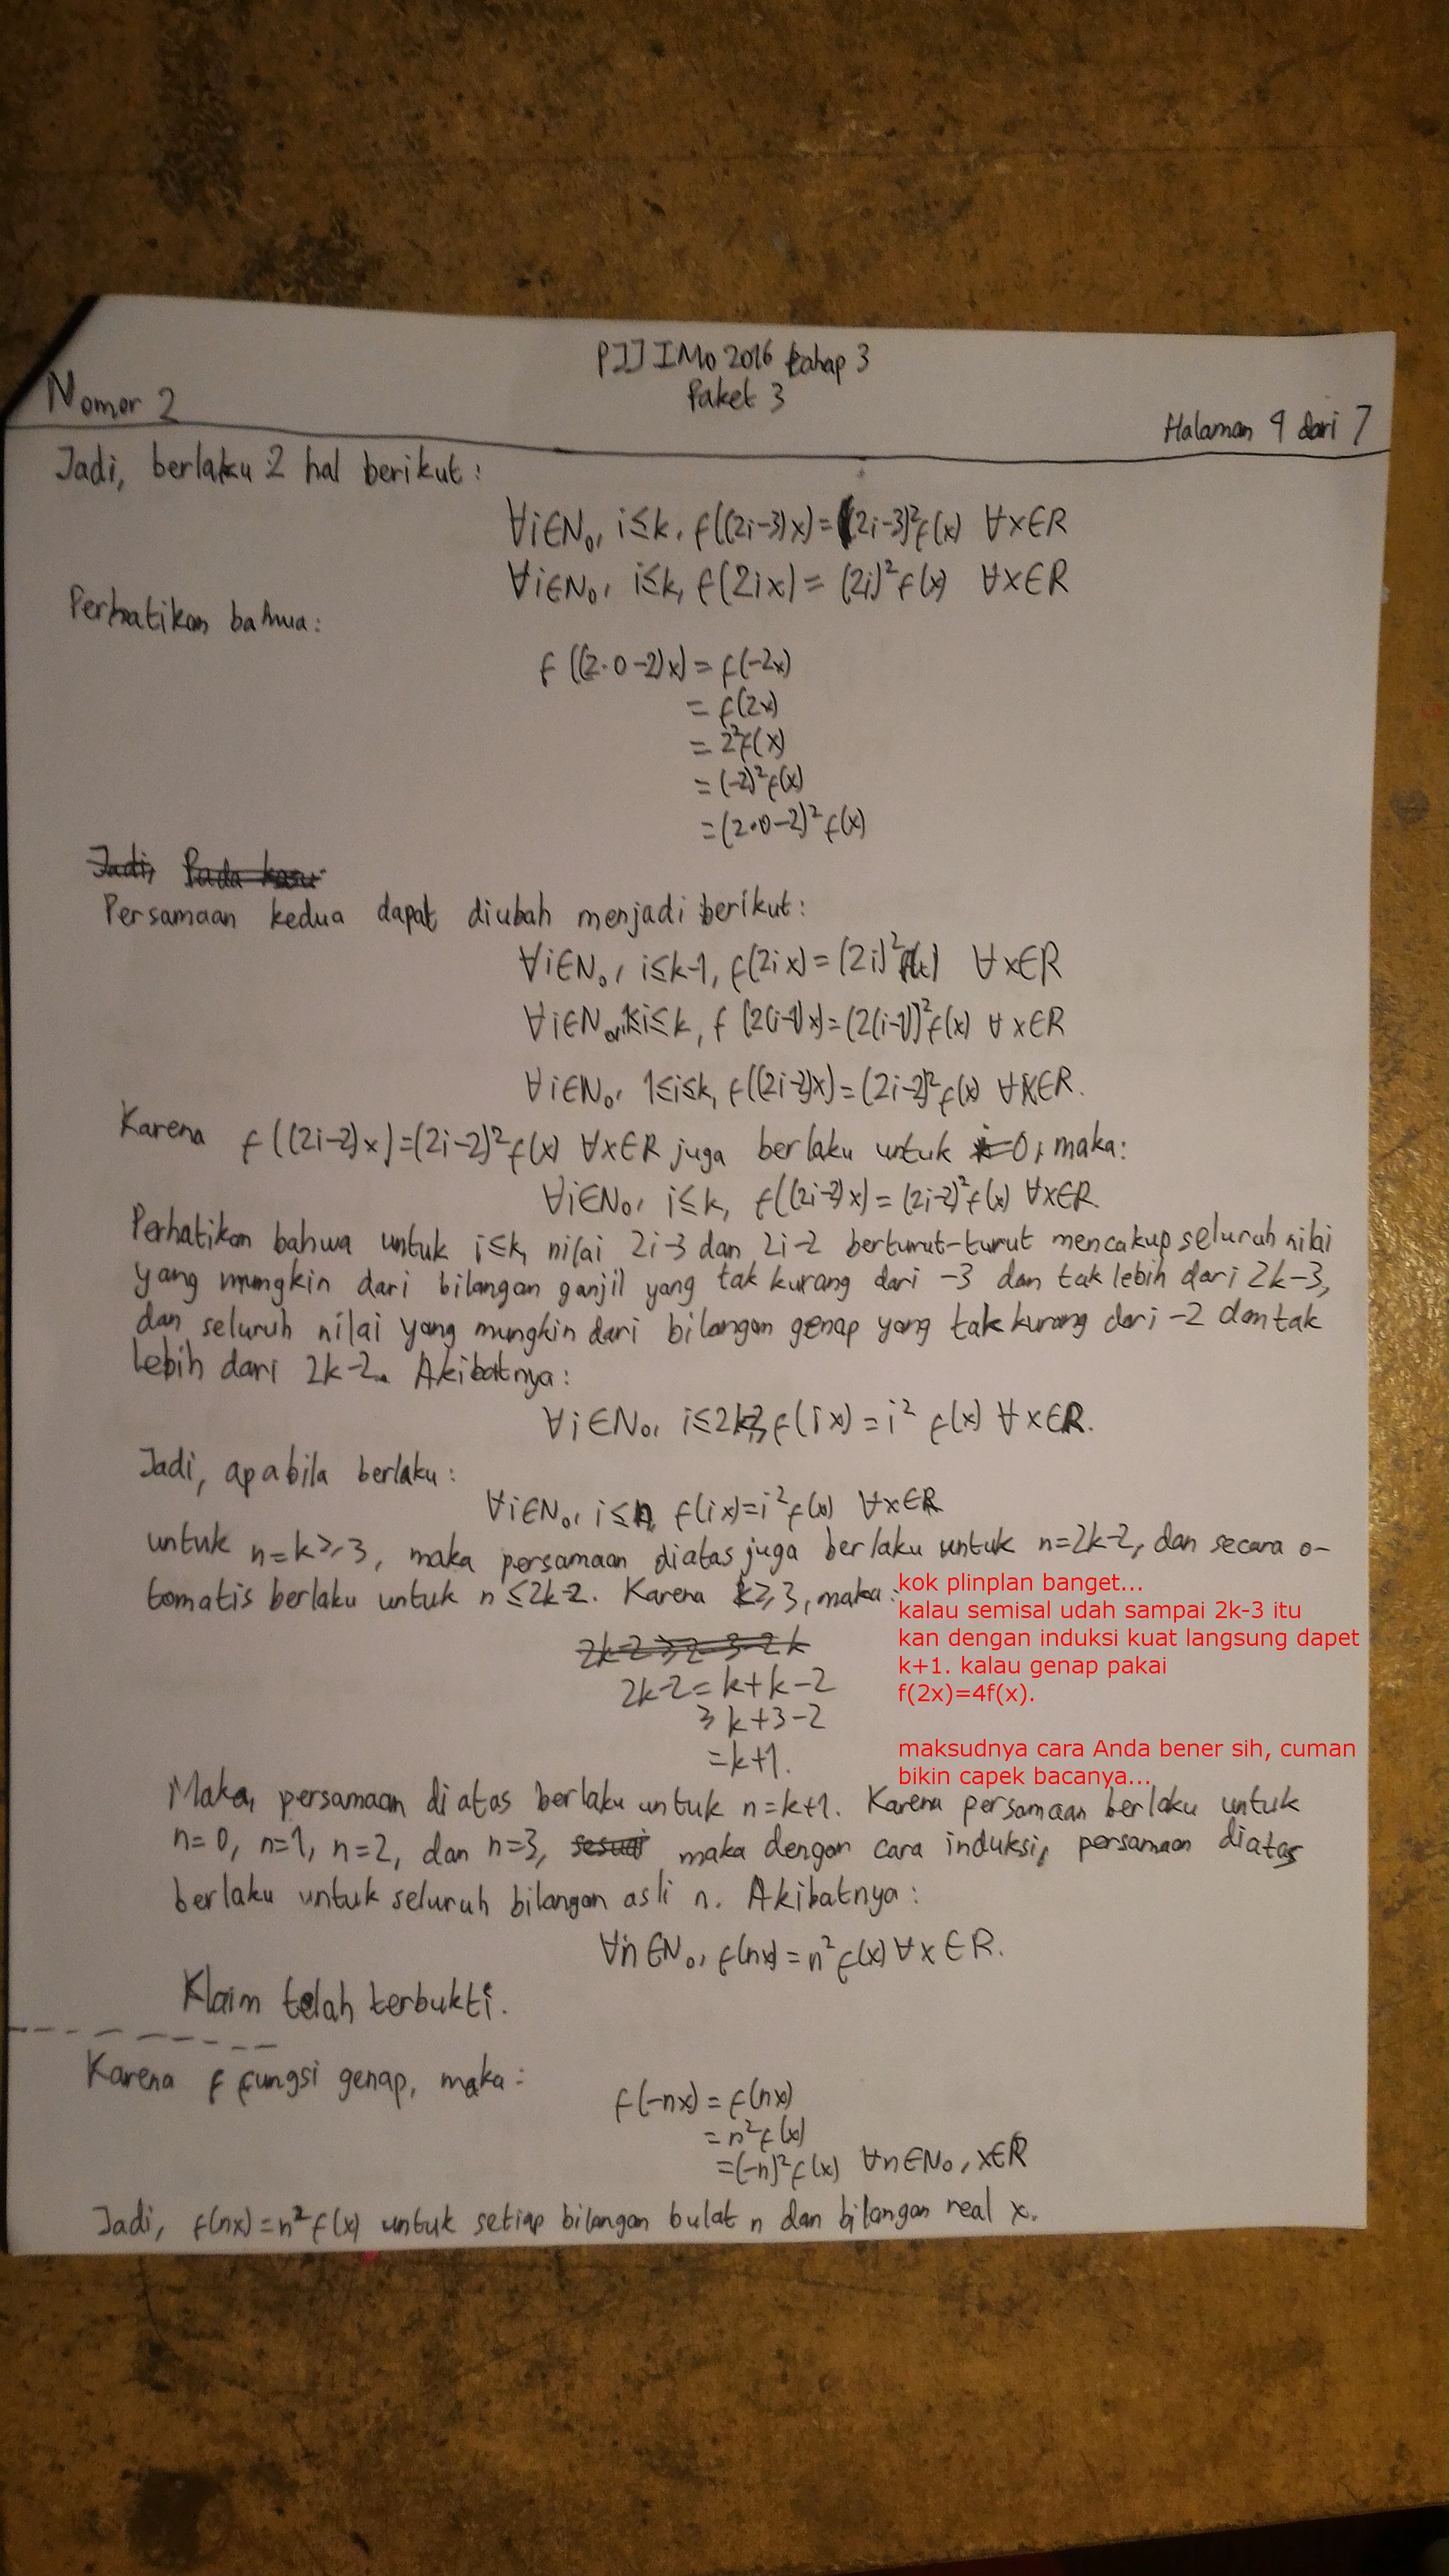 PJJ IMO 2016 tahap 3
Paket 3
Nomor 2
Halaman 4 dari 7
Jadi, berlaku 2 hal berikut:
∀i∈N₀, i≤k, f((2i-3)x)=(2i-3)²f(x) ∀x∈R
∀i∈N₀, i≤k, f(2ix)=(2i)²f(x) ∀x∈R
Perhatikan bahwa:
f((2·0-2)x)=f(-2x)
=f(2x)
=2²f(x)
=(-2)²f(x)
=(2·0-2)²f(x)
Persamaan kedua dapat diubah menjadi berikut:
∀i∈N₀, i≤k-1, f(2ix)=(2i)²f(x) ∀x∈R
∀i∈N₀, 1≤i≤k, f(2(i-1)x)=(2(i-1))²f(x) ∀x∈R
∀i∈N₀, 1≤i≤k, f((2i-2)x)=(2i-2)²f(x) ∀x∈R.
Karena f((2i-2)x)=(2i-2)²f(x) ∀x∈R juga berlaku untuk i=0, maka:
∀i∈N₀, i≤k, f((2i-2)x)=(2i-2)²f(x) ∀x∈R
Perhatikan bahwa untuk i≤k, nilai 2i-3 dan 2i-2 berturut-turut mencakup seluruh nilai
yang mungkin dari bilangan ganjil yang tak kurang dari -3 dan tak lebih dari 2k-3,
dan seluruh nilai yang mungkin dari bilangan genap yang tak kurang dari -2 dan tak
lebih dari 2k-2. Akibatnya:
∀i∈N₀, i≤2k-2, f(ix)=i² f(x) ∀x∈R.
Jadi, apabila berlaku:
∀i∈N₀, i≤n, f(ix)=i²f(x) ∀x∈R
untuk n=k≥3, maka persamaan diatas juga berlaku untuk n=2k-2, dan secara o-
tomatis berlaku untuk n≤2k-2. Karena k≥3, maka:
kok plinplan banget...
kalau semisal udah sampai 2k-3 itu
kan dengan induksi kuat langsung dapet
k+1. kalau genap pakai
f(2x)=4f(x).
maksudnya cara Anda bener sih, cuman
bikin capek bacanya...
2k-2=k+k-2
≥k+3-2
=k+1.
Maka, persamaan diatas berlaku untuk n=k+1. Karena persamaan berlaku untuk
n=0, n=1, n=2, dan n=3, maka dengan cara induksi, persamaan diatas
berlaku untuk seluruh bilangan asli n. Akibatnya:
∀n∈N₀, f(nx)=n²f(x) ∀x∈R.
Klaim telah terbukti.
Karena f fungsi genap, maka:
f(-nx)=f(nx)
=n²f(x)
=(-n)²f(x) ∀n∈N₀, x∈R
Jadi, f(nx)=n²f(x) untuk setiap bilangan bulat n dan bilangan real x.